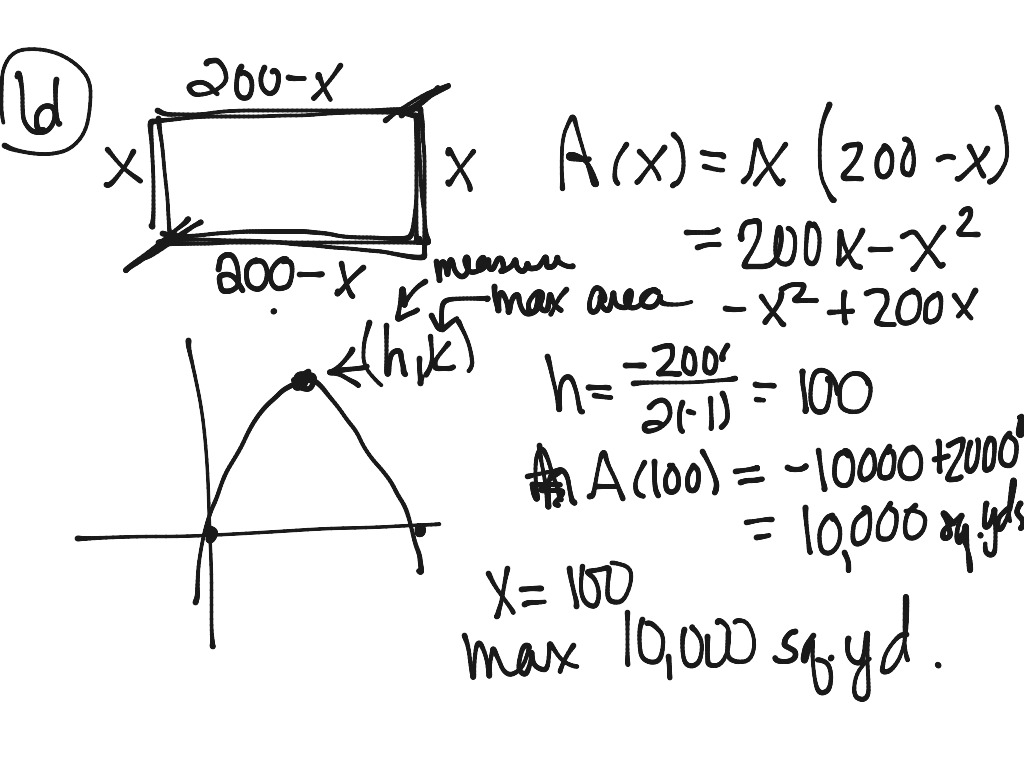 1d
200-x
x
x
200-x
A(x) = x (200-x)
= 200x - x²
-x² + 200x
measure
max area
(h,k)
h = -200/2(-1) = 100
A(100) = -10000 + 20000
= 10,000 sq.yds
x = 100
max 10,000 sq.yd.